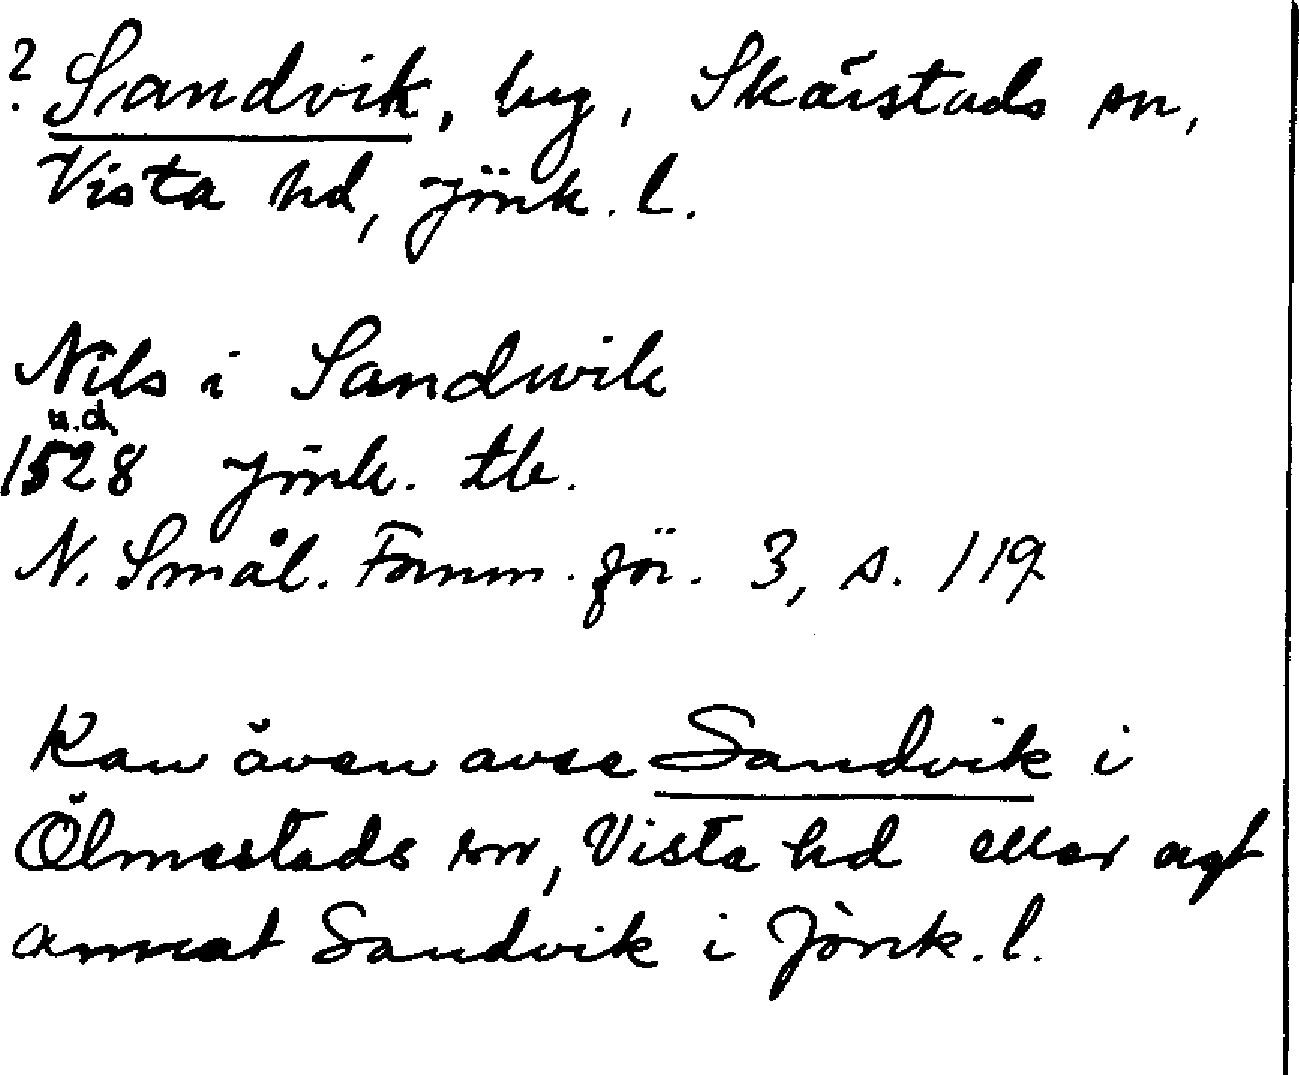 ? Sandvik, by, Skärstads sn,
Vista hd, Jönk. l.
Nils i Sandwik
u.d.
1528 Jönk. tb.
N. Smål. Fornm. för. 3, s. 119
Kan även avse Sandvik i
Ölmestads sn, Vista hd eller ngt
annat Sandvik i Jönk. l.